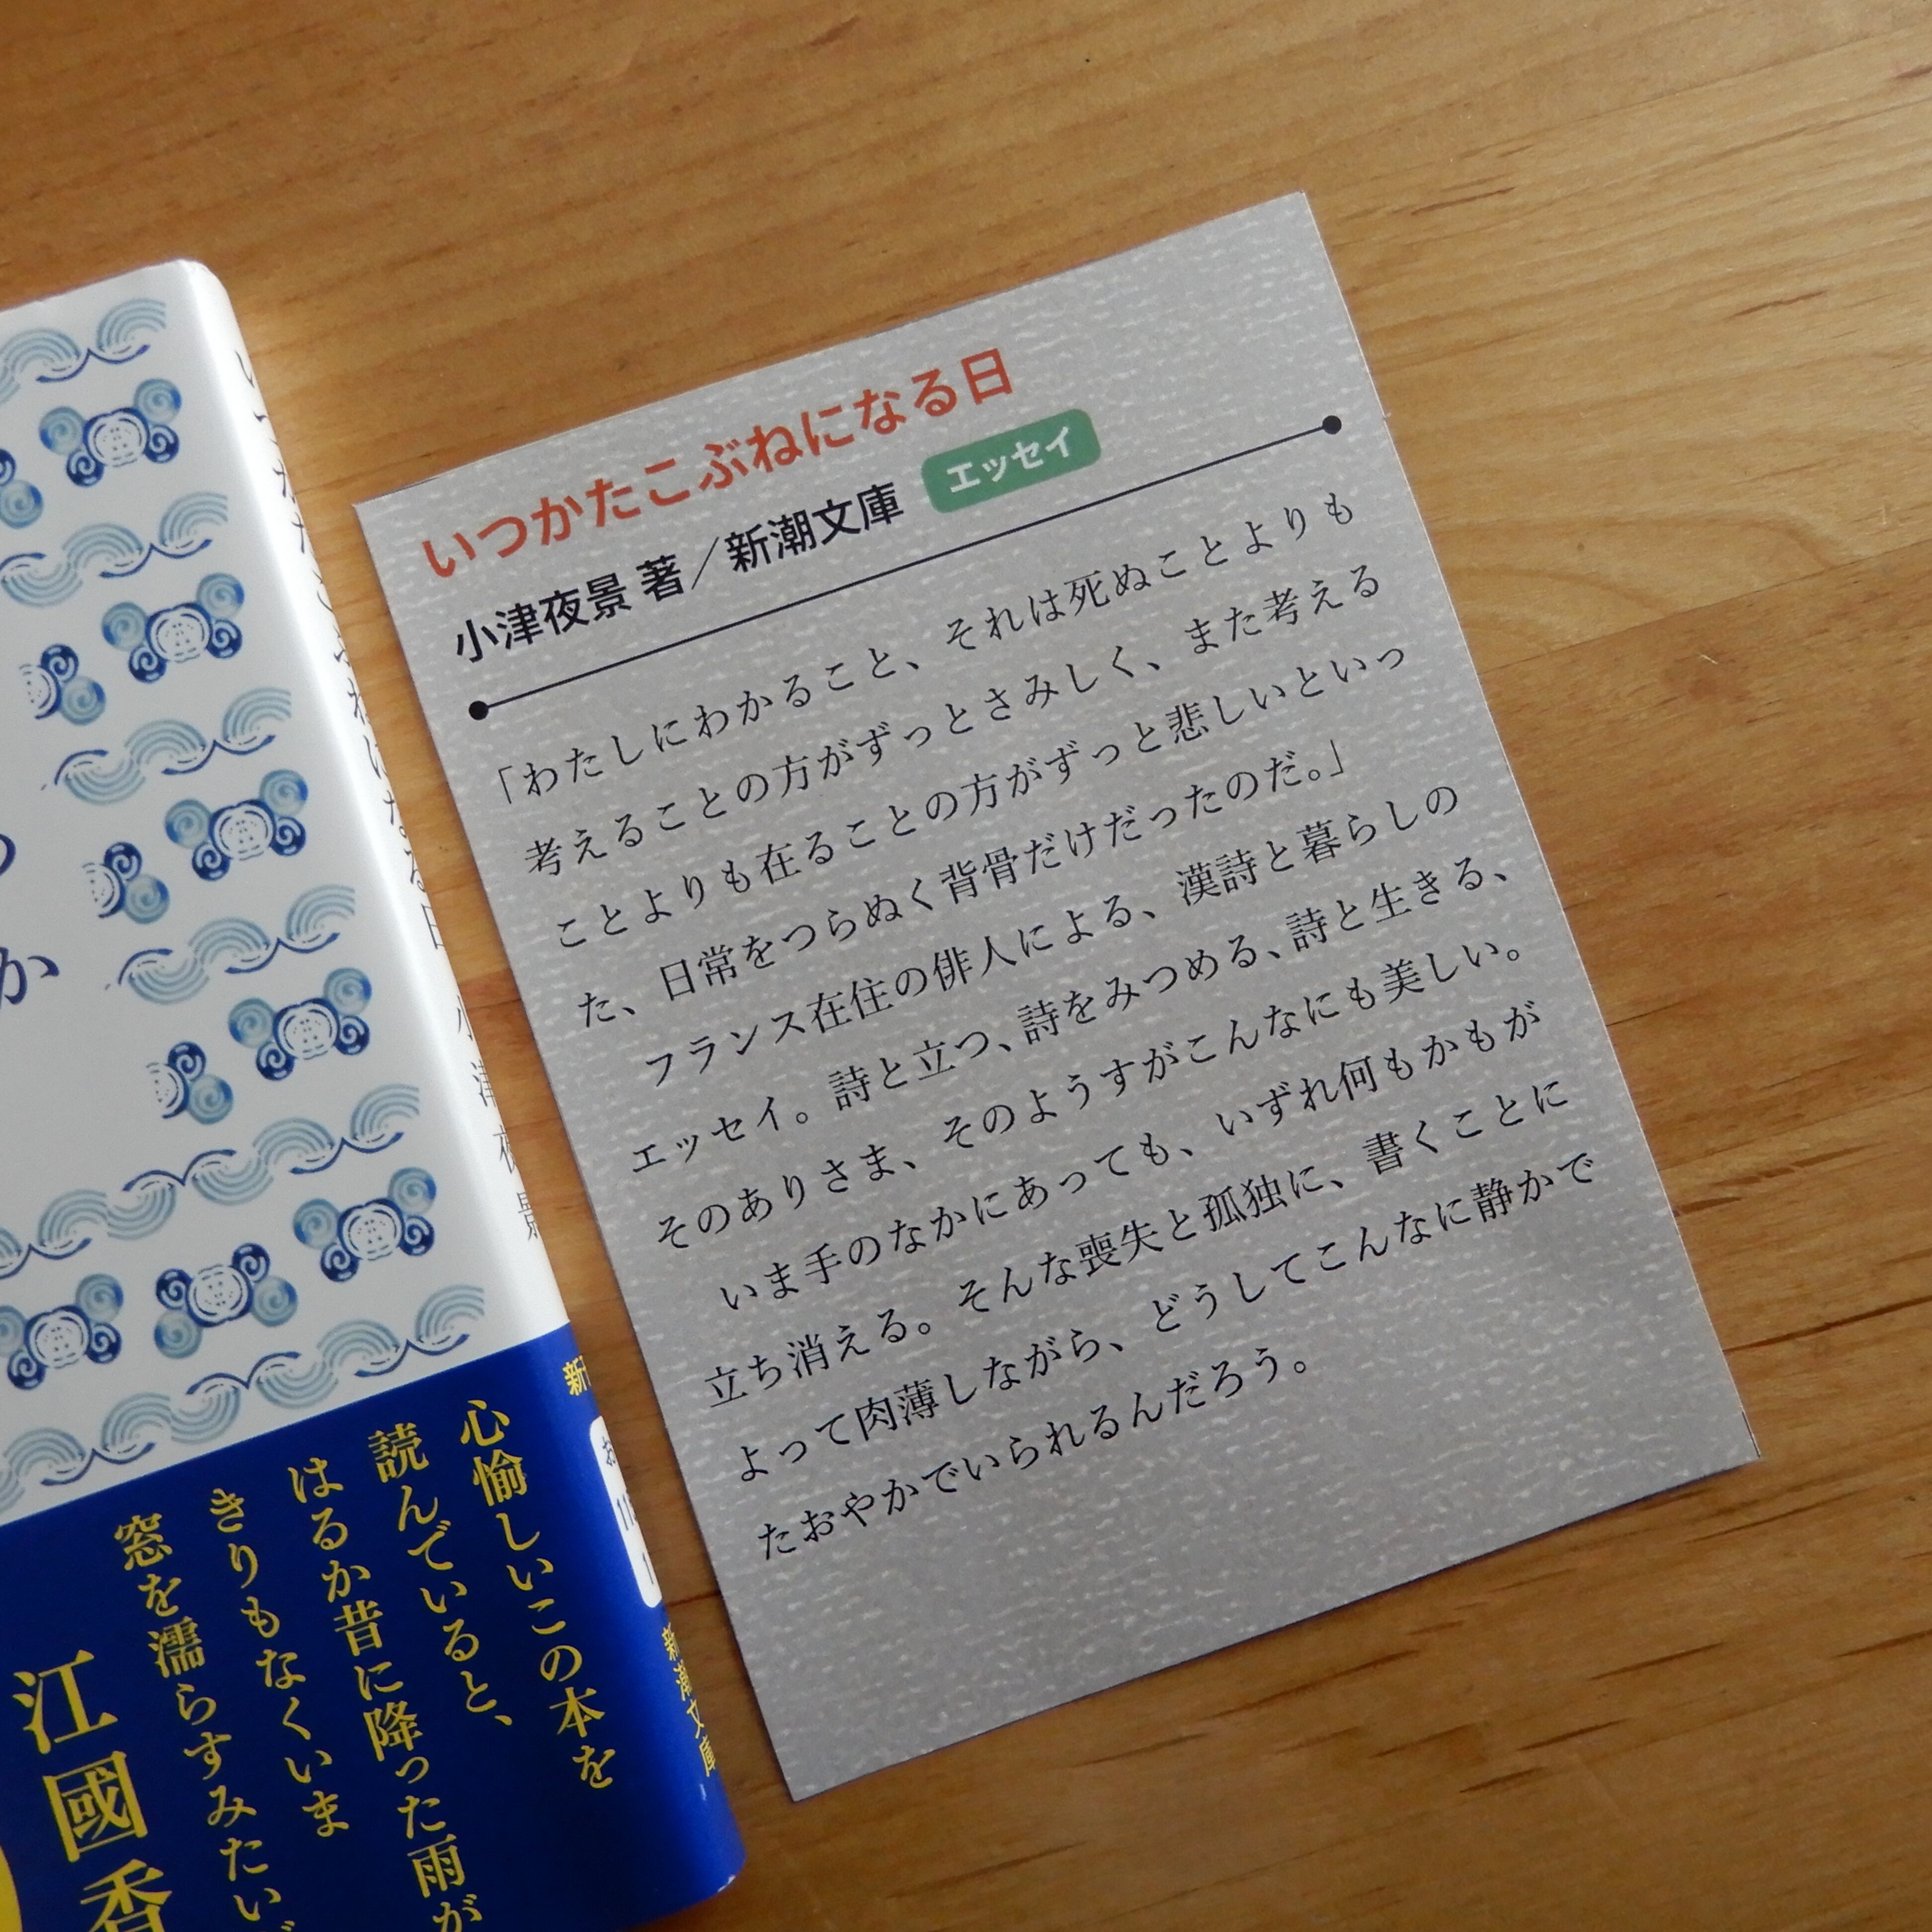 いつかたこぶねになる日
小津夜景 著／新潮文庫
エッセイ
「わたしにわかること、それは死ぬことよりも
考えることの方がずっとさみしく、また考える
ことよりも在ることの方がずっと悲しいといっ
た、日常をつらぬく背骨だけだったのだ。」
フランス在住の俳人による、漢詩と暮らしの
エッセイ。詩と立つ、詩をみつめる、詩と生きる、
そのありさま、そのようすがこんなにも美しい。
いま手のなかにあっても、いずれ何もかもが
立ち消える。そんな喪失と孤独に、書くことに
よって肉薄しながら、どうしてこんなに静かで
たおやかでいられるんだろう。
いつかたこぶねになる日 小津夜景
か
心愉しいこの本を
読んでいると、
はるか昔に降った雨が
きりもなくいま
窓を濡らすみたい
江國香
新潮文庫